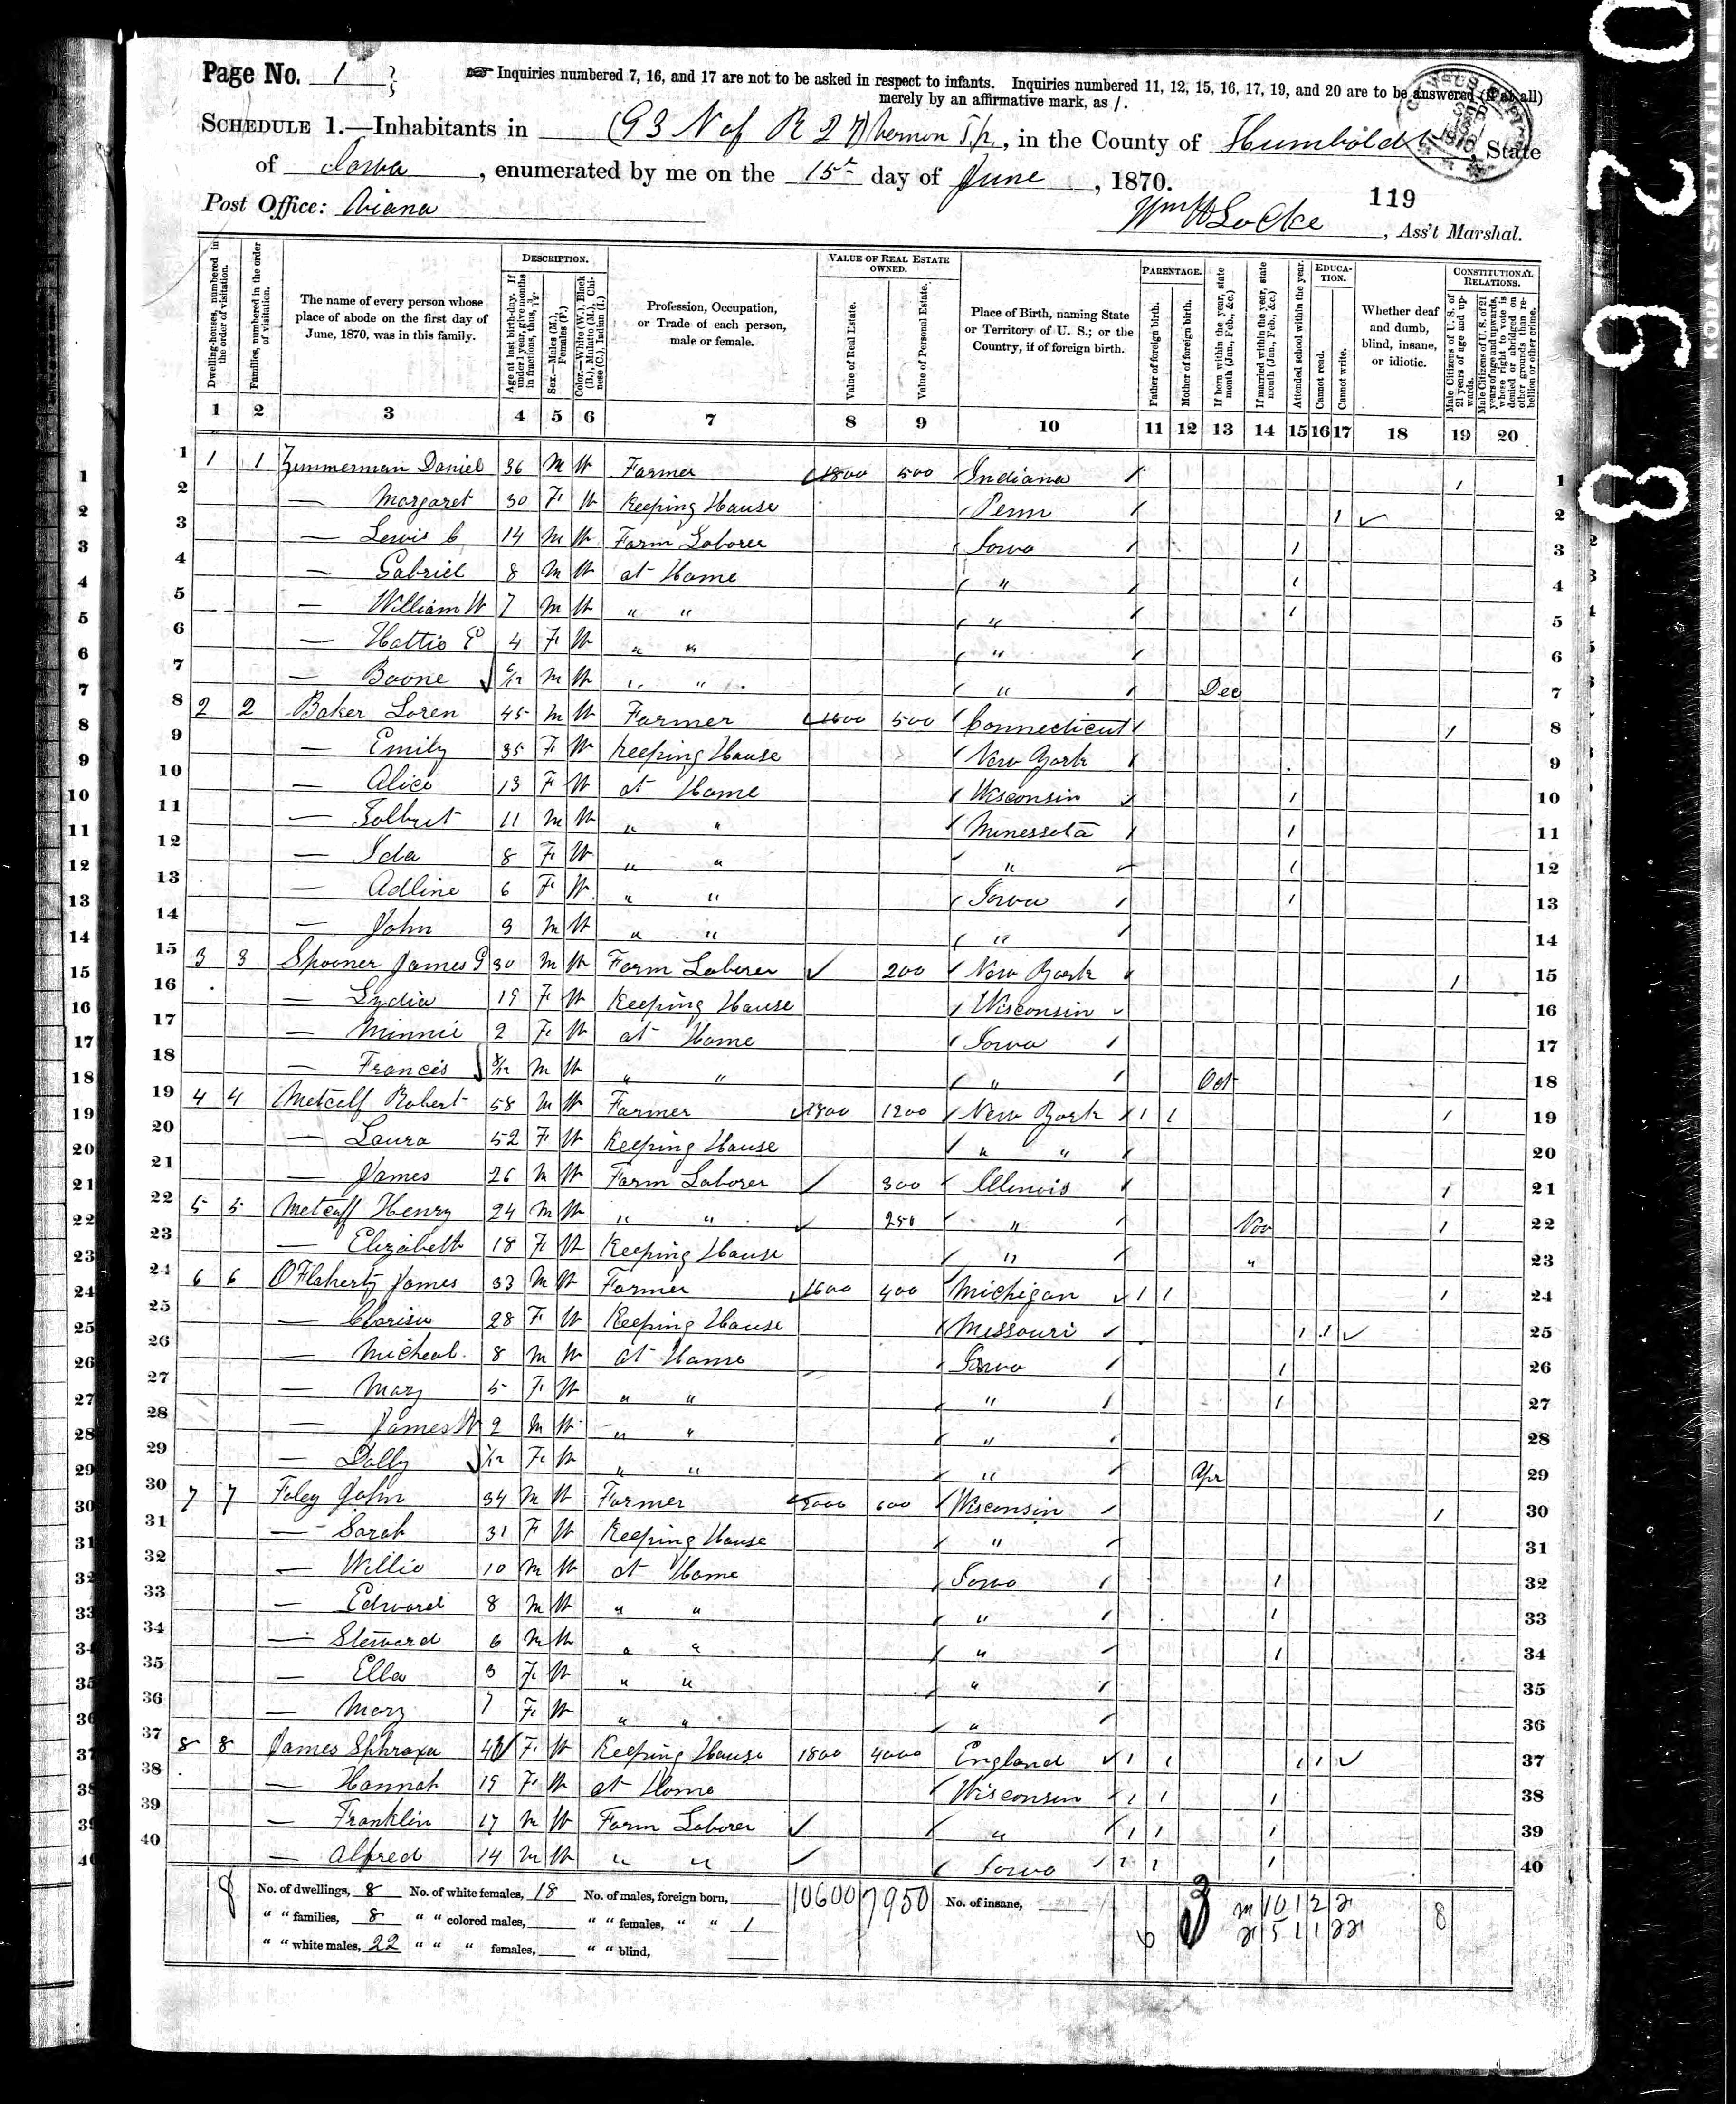 Page No. 1
Inquiries numbered 7, 16, and 17 are not to be asked in respect to infants. Inquiries numbered 11, 12, 15, 16, 17, 19, and 20 are to be answered (if at all)
merely by an affirmative mark, as /.
SCHEDULE 1.—Inhabitants in (93 N of R 27) Vernon Tp, in the County of Humboldt, State
of Iowa, enumerated by me on the 15 day of June, 1870.
119
Post Office:
Wm H Locke, Ass't Marshal.
DESCRIPTION. VALUE OF REAL ESTATE OWNED. PARENTAGE. EDUCATION. CONSTITUTIONAL RELATIONS.
Dwelling-houses, numbered in the order of visitation.
Families, numbered in the order of visitation.
The name of every person whose place of abode on the first day of June, 1870, was in this family.
Age at last birth-day. If under 1 year, give months in fractions, thus, 3/12.
Sex.—Males (M.), Females (F.)
Color.—White (W.), Black (B.), Mulatto (M.), Chinese (C.), Indian (I.)
Profession, Occupation, or Trade of each person, male or female.
Value of Real Estate.
Value of Personal Estate.
Place of Birth, naming State or Territory of U. S.; or the Country, if of foreign birth.
Father of foreign birth.
Mother of foreign birth.
If born within the year, state month (Jan., Feb., &c.)
If married within the year, state month (Jan., Feb., &c.)
Attended school within the year.
Cannot read.
Cannot write.
Whether deaf and dumb, blind, insane, or idiotic.
Male Citizens of U. S. of 21 years of age and upwards.
Male Citizens of U. S. of 21 years of age and upwards, whose right to vote is denied or abridged on other grounds than rebellion or other crime.
1 2 3 4 5 6 7 8 9 10 11 12 13 14 15 16 17 18 19 20
1 1 1 Zimmerman Daniel 36 M W Farmer 1800 500 Indiana 1 1
2 — Margaret 30 F W Keeping House Penn 1 2
3 — Lewis C 14 M W Farm Laborer Iowa 1 3
4 — Gabriel 8 M W at Home " 1 4
5 — William W 7 M W " " " 1 5
6 — Hattie E 4 F W " " " 6
7 — Boone 6/12 M W " " " Dec 7
8 2 2 Baker Loren 45 M W Farmer 1600 500 Connecticut 1 8
9 — Emily 35 F W Keeping House New York 9
10 — Alice 13 F W at Home Wisconsin 1 10
11 — Tolbert 11 M W " " Minessota 1 11
12 — Ida 8 F W " " " 1 12
13 — Adline 6 F W " " Iowa 1 13
14 — John 3 M W " " " 14
15 3 3 Spooner James G 30 M W Farm Laborer 200 New York 1 15
16 — Lydia 19 F W Keeping House Wisconsin 16
17 — Minnie 2 F W at Home Iowa 17
18 — Francis 8/12 M W " " " Oct 18
19 4 4 Metcalf Robert 58 M W Farmer 1800 1200 New York 1 1 1 19
20 — Laura 52 F W Keeping House " " 20
21 — James 26 M W Farm Laborer 300 Illinois 1 21
22 5 5 Metcalf Henry 24 M W " " 250 " Nov 1 22
23 — Elizabeth 18 F W Keeping House " " 23
24 6 6 O'Flaherty James 33 M W Farmer 1600 400 Michigan 1 1 1 24
25 — Clarisu 28 F W Keeping House Missouri 1 1 25
26 — Micheal 8 M W at Home Iowa 1 26
27 — Mary 5 F W " " " 1 27
28 — James W 2 M W " " " 28
29 — Dolly 1/12 F W " " " Apr 29
30 7 7 Foley John 34 M W Farmer 2000 600 Wisconsin 1 30
31 — Sarah 31 F W Keeping House " 31
32 — Willie 10 M W at Home Iowa 1 32
33 — Edward 8 M W " " " 1 33
34 — Steward 6 M W " " " 1 34
35 — Ella 3 F W " " " 35
36 — Mary 1 F W " " " 36
37 8 8 James F W Keeping House 1800 4000 England 1 1 1 1 37
38 — Hannah 19 F W at Home Wisconsin 1 1 1 38
39 — Franklin 17 M W Farm Laborer " 1 1 1 39
40 — Alfred 14 M W " " Iowa 1 1 1 40
No. of dwellings, 8 No. of white females, 18 No. of males, foreign born, 10600 7950 No. of insane,
" " families, 8 " " colored males, " " females, " " 1
" " white males, 22 " " " females, " " blind,